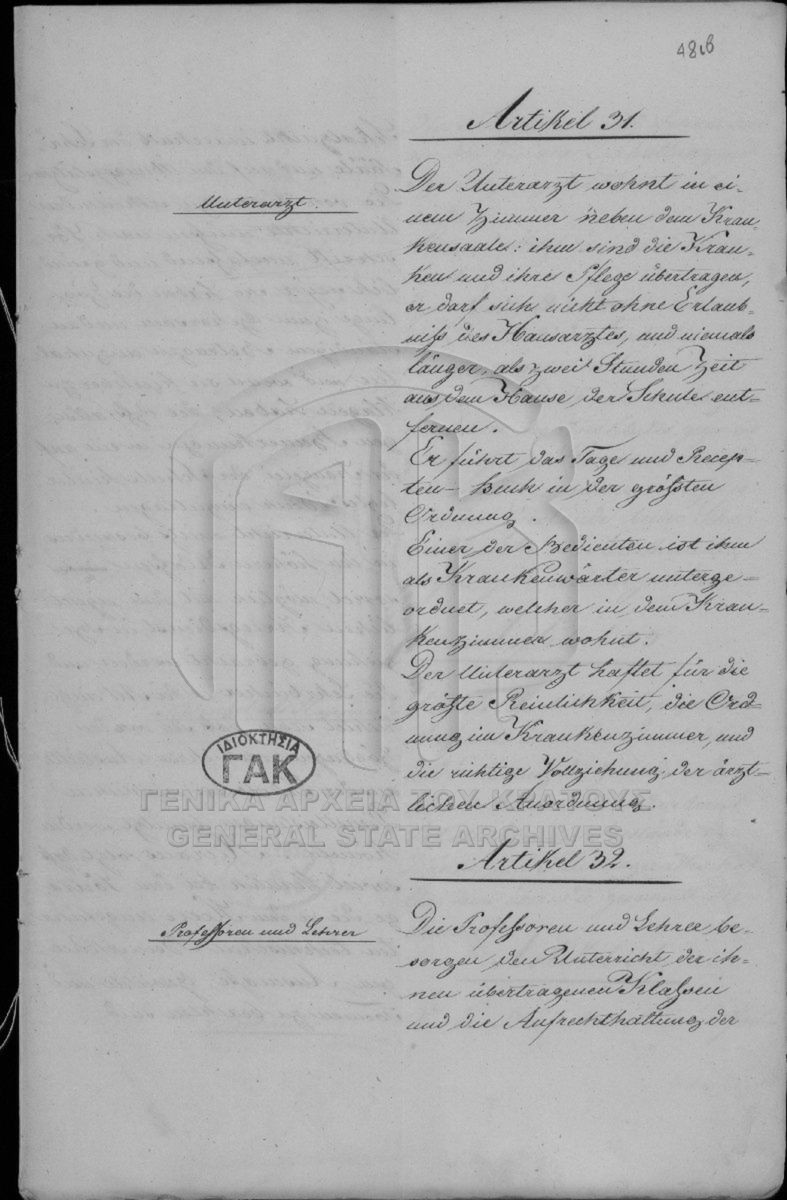 4816
Artikel 31.
Unterarzt.
Der Unterarzt wohnt in ei-
nem Zimmer neben dem Kran-
kensaale: ihm sind die Kran-
ken und ihre Pflege übertragen,
er darf sich nicht ohne Erlaub-
niß des Hausarztes, und niemals
länger, als zwei Stunden Zeit
aus dem Hause der Schule ent-
fernen.
Er führt das Tage und Recep-
ten-Buch in der größten
Ordnung.
Einer der Bedienten ist ihm
als Krankenwärter unterge-
ordnet, welcher in dem Kran-
kenzimmer wohnt.
Der Unterarzt haftet für die
größte Reinlichkeit, die Ord-
nung im Krankenzimmer, und
die richtige Vollziehung der ärzt-
lichen Anordnung.
ΙΔΙΟΚΤΗΣΙΑ
ΓΑΚ
ΓΕΝΙΚΑ ΑΡΧΕΙΑ ΤΟΥ ΚΡΑΤΟΥΣ
GENERAL STATE ARCHIVES
Artikel 32.
Professoren und Lehrer
Die Professoren und Lehrer be-
sorgen den Unterricht der ih-
nen übertragenen Klaßen
und die Aufrechthaltung der